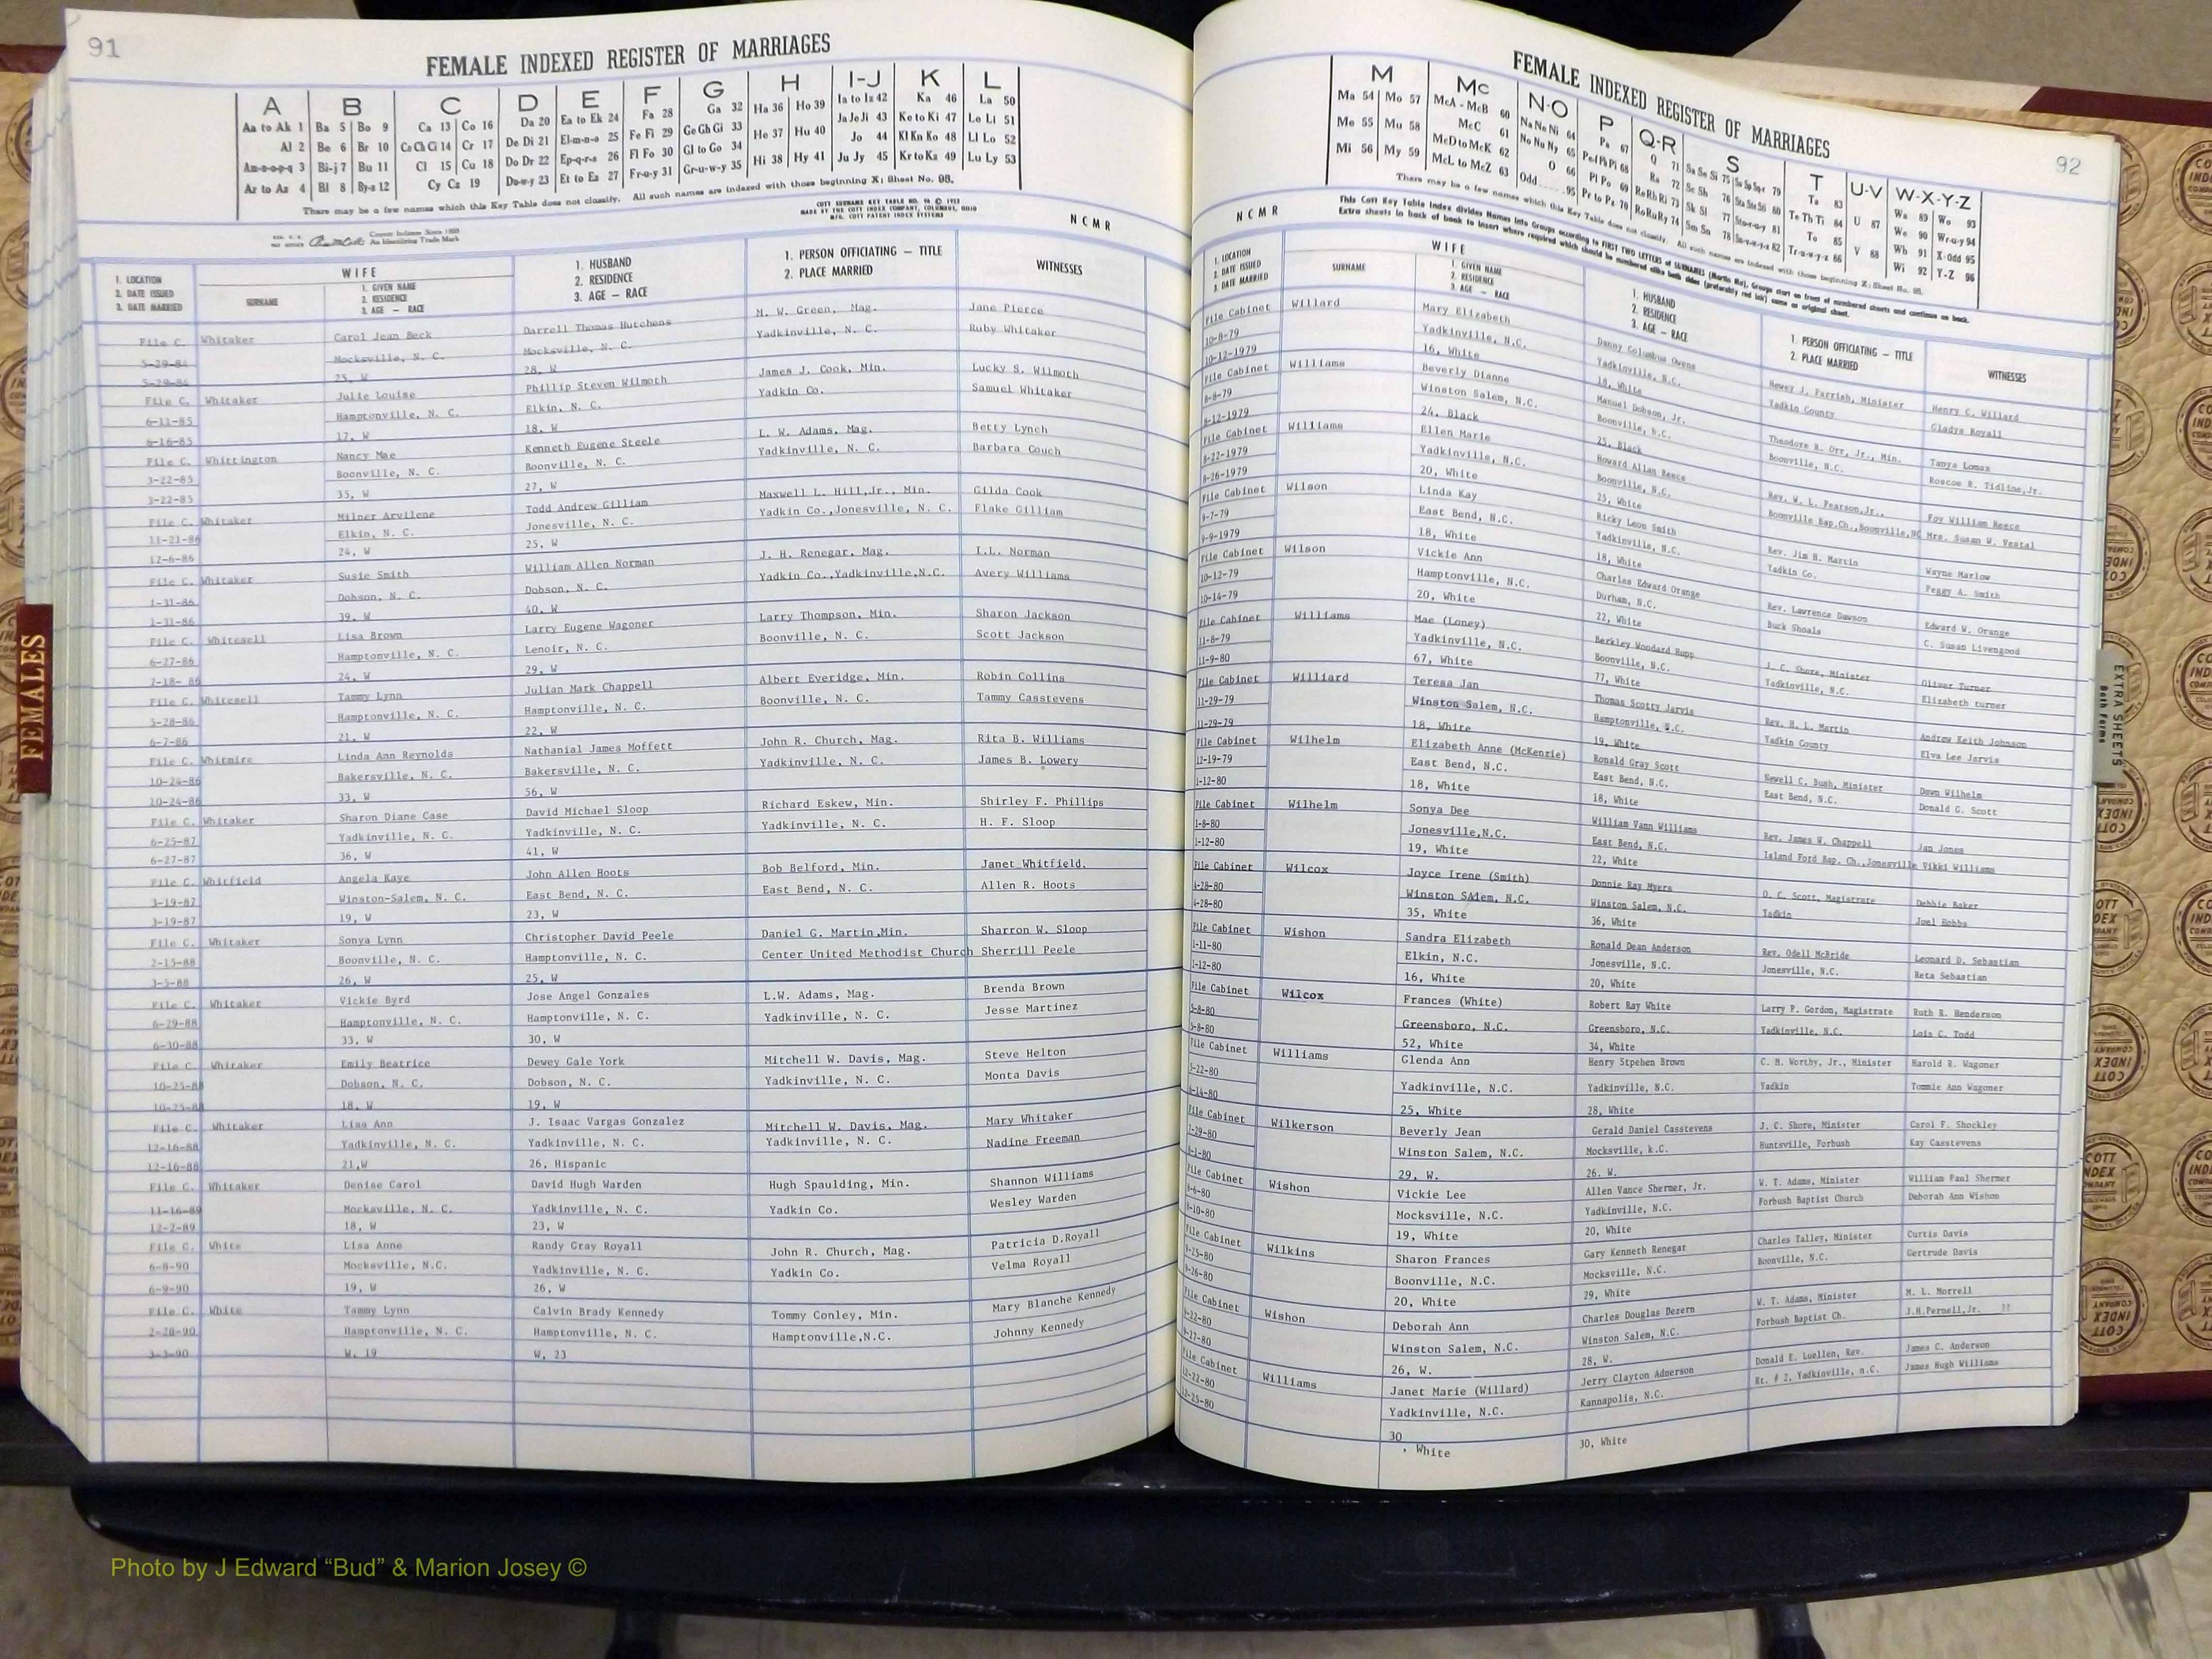 91
FEMALE INDEXED REGISTER OF MARRIAGES
A B C D E F G H I-J K L
Aa to Ak 1 Ba 5 Bo 9 Ca 13 Co 16 Da 20 Ea to Ek 24 Fa 28 Ga 32 Ha 36 Ho 39 Ia to Iz 42 Ka 46 La 50
Al 2 Be 6 Br 10 Ce Ch Ci 14 Cr 17 De Di 21 El-m-n-o 25 Fe Fi 29 Ge Gh Gi 33 He 37 Hu 40 Ja Je Ji 43 Ke to Ki 47 Le Li 51
Am-n-o-p-q 3 Bi-j 7 Bu 11 Cl 15 Cu 18 Do Dr 22 Ep-q-r-s 26 Fl Fo 30 Gl to Go 34 Hi 38 Hy 41 Jo 44 Kl Kn Ko 48 Ll Lo 52
Ar to Az 4 Bl 8 By-z 12 Cy Cz 19 Du-w-y 23 Et to Ez 27 Fr-u-y 31 Gr-u-w-y 35 Ju Jy 45 Kr to Kz 49 Lu Ly 53
There may be a few names which this Key Table does not classify. All such names are indexed with those beginning X; Sheet No. 95.
NCMR
1. LOCATION
2. DATE ISSUED
3. DATE MARRIED
WIFE
SURNAME
1. GIVEN NAME
2. RESIDENCE
3. AGE — RACE
1. HUSBAND
2. RESIDENCE
3. AGE — RACE
1. PERSON OFFICIATING — TITLE
2. PLACE MARRIED
WITNESSES
File C. Whitaker Carol Jean Beck Darrell Thomas Hutchens M. W. Green, Mag. Jane Pierce
5-29-84 Mocksville, N. C. Mocksville, N. C. Yadkinville, N. C. Ruby Whitaker
5-29-84 25, W 28, W
File C. Whitaker Julie Louise Phillip Steven Wilmoth James J. Cook, Min. Lucky S. Wilmoth
6-11-85 Hamptonville, N. C. Elkin, N. C. Yadkin Co. Samuel Whitaker
6-16-85 17, W 18, W
File C. Whittington Nancy Mae Kenneth Eugene Steele L. W. Adams, Mag. Betty Lynch
3-22-85 Boonville, N. C. Boonville, N. C. Yadkinville, N. C. Barbara Couch
3-22-85 35, W 27, W
File C. Whitaker Milner Arvilene Todd Andrew Gilliam Maxwell L. Hill,Jr., Min. Gilda Cook
11-21-86 Elkin, N. C. Jonesville, N. C. Yadkin Co.,Jonesville, N. C. Flake Gilliam
12-6-86 24, W 25, W
File C. Whitaker Susie Smith William Allen Norman J. H. Renegar, Mag. I.L. Norman
1-31-86 Dobson, N. C. Dobson, N. C. Yadkin Co.,Yadkinville,N.C. Avery Williams
1-31-86 39, W 40, W
File C. Whitesell Lisa Brown Larry Eugene Wagoner Larry Thompson, Min. Sharon Jackson
6-27-86 Hamptonville, N. C. Lenoir, N. C. Boonville, N. C. Scott Jackson
7-18- 86 24, W 29, W
File C. Whitesell Tammy Lynn Julian Mark Chappell Albert Everidge, Min. Robin Collins
5-28-86 Hamptonville, N. C. Hamptonville, N. C. Boonville, N. C. Tammy Casstevens
6-7-86 21, W 22, W
File C. Whitmire Linda Ann Reynolds Nathanial James Moffett John R. Church, Mag. Rita B. Williams
10-24-86 Bakersville, N. C. Bakersville, N. C. Yadkinville, N. C. James B. Lowery
10-24-86 33, W 56, W
File C. Whitaker Sharon Diane Case David Michael Sloop Richard Eskew, Min. Shirley F. Phillips
6-25-87 Yadkinville, N. C. Yadkinville, N. C. Yadkinville, N. C. H. F. Sloop
6-27-87 36, W 41, W
File C. Whitfield Angela Kaye John Allen Hoots Bob Belford, Min. Janet Whitfield.
3-19-87 Winston-Salem, N. C. East Bend, N. C. East Bend, N. C. Allen R. Hoots
3-19-87 19, W 23, W
File C. Whitaker Sonya Lynn Christopher David Peele Daniel G. Martin,Min. Sharron W. Sloop
2-15-88 Boonville, N. C. Hamptonville, N. C. Center United Methodist Church Sherrill Peele
3-5-88 26, W 25, W
File C. Whitaker Vickie Byrd Jose Angel Gonzales L.W. Adams, Mag. Brenda Brown
6-29-88 Hamptonville, N. C. Hamptonville, N. C. Yadkinville, N. C. Jesse Martinez
6-30-88 33, W 30, W
File C. Whitaker Emily Beatrice Dewey Gale York Mitchell W. Davis, Mag. Steve Helton
10-25-88 Dobson, N. C. Dobson, N. C. Yadkinville, N. C. Monta Davis
10-25-88 18, W 19, W
File C. Whitaker Lisa Ann J. Isaac Vargas Gonzalez Mitchell W. Davis, Mag. Mary Whitaker
12-16-88 Yadkinville, N. C. Yadkinville, N. C. Yadkinville, N. C. Nadine Freeman
12-16-88 21,W 26, Hispanic
File C. Whitaker Denise Carol David Hugh Warden Hugh Spaulding, Min. Shannon Williams
11-16-89 Mocksville, N. C. Yadkinville, N. C. Yadkin Co. Wesley Warden
12-2-89 18, W 23, W
File C. White Lisa Anne Randy Gray Royall John R. Church, Mag. Patricia D.Royall
6-8-90 Mocksville, N.C. Yadkinville, N. C. Yadkin Co. Velma Royall
6-9-90 19, W 26, W
File C. White Tammy Lynn Calvin Brady Kennedy Tommy Conley, Min. Mary Blanche Kennedy
2-28-90 Hamptonville, N. C. Hamptonville, N. C. Hamptonville,N.C. Johnny Kennedy
3-3-90 W, 19 W, 23
FEMALES
92
FEMALE INDEXED REGISTER OF MARRIAGES
M Mc N-O P Q-R S T U-V W-X-Y-Z
Ma 54 Mo 57 McA - McB 60 Na Ne Ni 64 Pa 67 Q 71 Sa Se Si 75 Ta 83 U 87 Wa 89 Wo 93
Me 55 Mu 58 McC 61 No Nu Ny 65 Pe Ph Pi 68 Ra 72 Sc Sh 76 Te Th Ti 84 We 90 Wr-u-y 94
Mi 56 My 59 McD to McK 62 O 66 Pl Po 69 Re Rh Ri 73 Sk Sl 77 To 85 V 88 Wh 91 X-Odd 95
McL to McZ 63 Odd 95 Pr to Pz 70 Ro Ru Ry 74 Sm Sn 78 Tr-u-w-y-z 86 Wi 92 Y-Z 96
There may be a few names which this Key Table does not classify. All such names are indexed with those beginning X; Sheet No. 95.
This Cott Key Table Index divides Names into Groups according to FIRST TWO LETTERS of SURNAMES (Martin Ma). Groups start on front of numbered sheets and continue on back.
Extra sheets in back of book to insert where required which should be numbered alike both sides (preferably red ink) same as original sheet.
NCMR
1. LOCATION
2. DATE ISSUED
3. DATE MARRIED
WIFE
SURNAME
1. GIVEN NAME
2. RESIDENCE
3. AGE — RACE
1. HUSBAND
2. RESIDENCE
3. AGE — RACE
1. PERSON OFFICIATING — TITLE
2. PLACE MARRIED
WITNESSES
File Cabinet Willard Mary Elizabeth Danny Columbus Owens Hewey J. Parrish, Minister Henry C. Willard
10-8-79 Yadkinville, N.C. Yadkinville, N.C. Yadkin County Gladys Royall
10-12-1979 16, White 18, White
File Cabinet Williams Beverly Dianne Manuel Dobson, Jr. Theodore R. Orr, Jr., Min. Tanya Lomax
8-8-79 Winston Salem, N.C. Boonville, N.C. Boonville, N.C. Roscoe R. Tidline,Jr.
8-12-1979 24, Black 25, Black
File Cabinet Williams Ellen Marie Howard Allan Reece Rev. W. L. Pearson,Jr., Foy William Reece
8-22-1979 Yadkinville, N.C. Boonville, N.C. Boonville Bap.Ch.,Boonville,NC Mrs. Susan W. Vestal
8-26-1979 20, White 25, White
File Cabinet Wilson Linda Kay Ricky Leon Smith Rev. Jim H. Martin Wayne Marlow
9-7-79 East Bend, N.C. Yadkinville, N.C. Yadkin Co. Peggy A. Smith
9-9-1979 18, White 18, White
File Cabinet Wilson Vickie Ann Charles Edward Orange Rev. Lawrence Dawson Edward W. Orange
10-12-79 Hamptonville, N.C. Durham, N.C. Buck Shoals C. Susan Livengood
10-14-79 20, White 22, White
File Cabinet Williams Mae (Loney) Berkley Woodard Rupp J. C. Shore, Minister Oliver Turner
11-8-79 Yadkinville, N.C. Boonville, N.C. Yadkinville, N.C. Elizabeth turner
11-9-80 67, White 77, White
File Cabinet Williard Teresa Jan Thomas Scotty Jarvis Rev. H. L. Martin Andrew Keith Johnson
11-29-79 Winston Salem, N.C. Hamptonville, N.C. Yadkin County Elva Lee Jarvis
11-29-79 18, White 19, White
File Cabinet Wilhelm Elizabeth Anne (McKenzie) Ronald Gray Scott Newell C. Bush, Minister Dawn Wilhelm
12-19-79 East Bend, N.C. East Bend, N.C. East Bend, N.C. Donald G. Scott
1-12-80 18, White 18, White
File Cabinet Wilhelm Sonya Dee William Vann Williams Rev. James W. Chappell Jan Jones
1-8-80 Jonesville,N.C. East Bend, N.C. Island Ford Bap. Ch.,Jonesville Vikki Williams
1-12-80 19, White 22, White
File Cabinet Wilcox Joyce Irene (Smith) Donnie Ray Myers D. C. Scott, Magistrate Debbie Baker
4-28-80 Winston SAlem, N.C. Winston Salem, N.C. Yadkin Joel Hobbs
4-28-80 35, White 36, White
File Cabinet Wishon Sandra Elizabeth Ronald Dean Anderson Rev. Odell McBride Leonard D. Sebastian
1-11-80 Elkin, N.C. Jonesville, N.C. Jonesville, N.C. Reta Sebastian
1-12-80 16, White 20, White
File Cabinet Wilcox Frances (White) Robert Ray White Larry P. Gordon, Magistrate Ruth R. Henderson
5-8-80 Greensboro, N.C. Greensboro, N.C. Yadkinville, N.C. Lois C. Todd
5-8-80 52, White 34, White
File Cabinet Williams Glenda Ann Henry Stpehen Brown C. H. Worthy, Jr., Minister Harold R. Wagoner
5-22-80 Yadkinville, N.C. Yadkinville, N.C. Yadkin Tommie Ann Wagoner
6-14-80 25, White 28, White
File Cabinet Wilkerson Beverly Jean Gerald Daniel Casstevens J. C. Shore, Minister Carol F. Shockley
-29-80 Winston Salem, N.C. Mocksville, k.C. Huntsville, Forbush Kay Casstevens
-1-80 29, W. 26. W.
File Cabinet Wishon Vickie Lee Allen Vance Shermer, Jr. W. T. Adams, Minister William Paul Shermer
-6-80 Mocksville, N.C. Yadkinville, N.C. Forbush Baptist Church Deborah Ann Wishon
-10-80 19, White 20, White
File Cabinet Wilkins Sharon Frances Gary Kenneth Renegar Charles Talley, Minister Curtis Davis
-25-80 Boonville, N.C. Mocksville, N.C. Boonville, N.C. Gertrude Davis
-26-80 20, White 29, White
File Cabinet Wishon Deborah Ann Charles Douglas Dezern W. T. Adams, Minister M. L. Morrell
-22-80 Winston Salem, N.C. Winston Salem, N.C. Forbush Baptist Ch. J.H.Pernell,Jr.
-27-80 26, W. 28, W.
File Cabinet Williams Janet Marie (Willard) Jerry Clayton Adnerson Donald E. Luellen, Rev. James C. Anderson
12-22-80 Yadkinville, N.C. Kannapolis, N.C. Rt. # 2, Yadkinville, n.C. James Hugh Williams
12-25-80 30, White 30, White
EXTRA SHEETS
Both Forms
Photo by J Edward “Bud” & Marion Josey ©